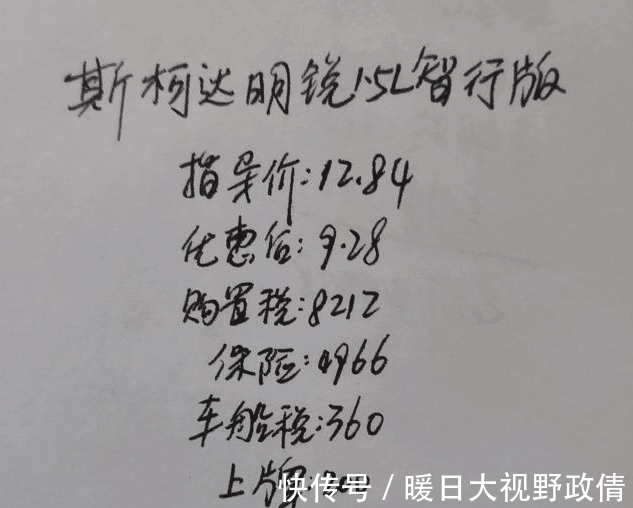 斯柯达明锐1.5L智行版
指导价:12.84
优惠后:9.28
购置税:8212
保险:4966
车船税:360
上牌
快传号／暖日大视野政倩